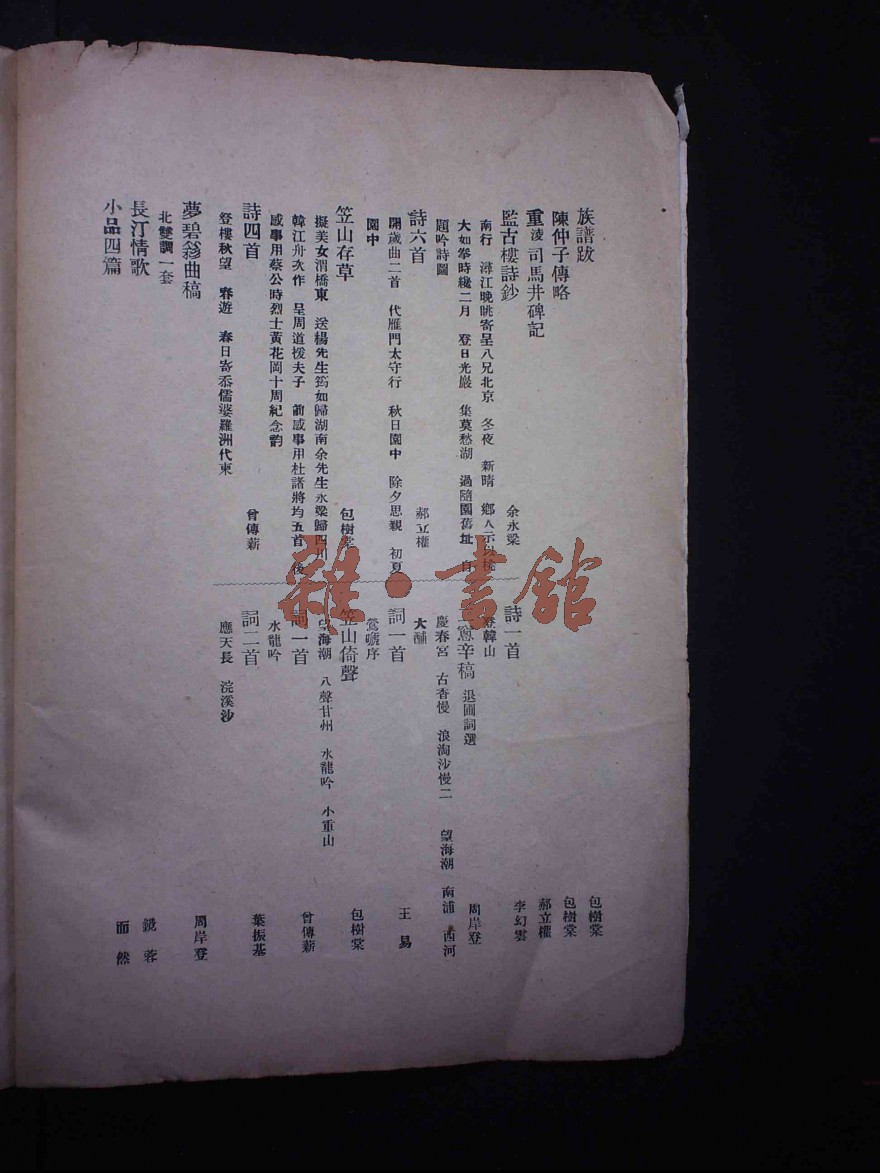 族譜跋 包樹棠
陳仲子傳略 包樹棠
重淩司馬井碑記 郝立權
監古樓詩鈔 余永梁
南行 潯江晚眺寄呈八兄北京 冬夜 新晴 鄉人示
大如拳時纔二月 登日光巖 集莫愁湖 過隨園舊址 自
題吟詩圖
詩六首 郝立權
開歲曲二首 代雁門太守行 秋日園中 除夕思親 初夏
園中
笠山存草 包樹棠
擬美女渭橋東 送楊先生筠如歸湖南余先生永梁歸四川
韓江舟次作 呈周道援夫子 前感事用杜諸將均五首 後
感事用蔡公時烈士黃花岡十周紀念韵
詩四首 曾傳薪
登樓秋望 春遊 春日寄忝儒婆羅洲代柬
詩一首 李幻雲
登韓山
辛稿 退圃詞選 周岸登
慶春宮 古香慢 浪淘沙慢二 望海潮 南浦 西河
大酺
詞一首 王易
鶯嗁序
笠山倚聲 包樹棠
望海潮 八聲甘州 水龍吟 小重山
詞一首 曾傳薪
水龍吟
詞二首 葉振基
應天長 浣溪沙
夢碧簃曲稿 周岸登
北雙調一套
長汀情歌 鏡蓉
小品四篇 而然
雜·書館